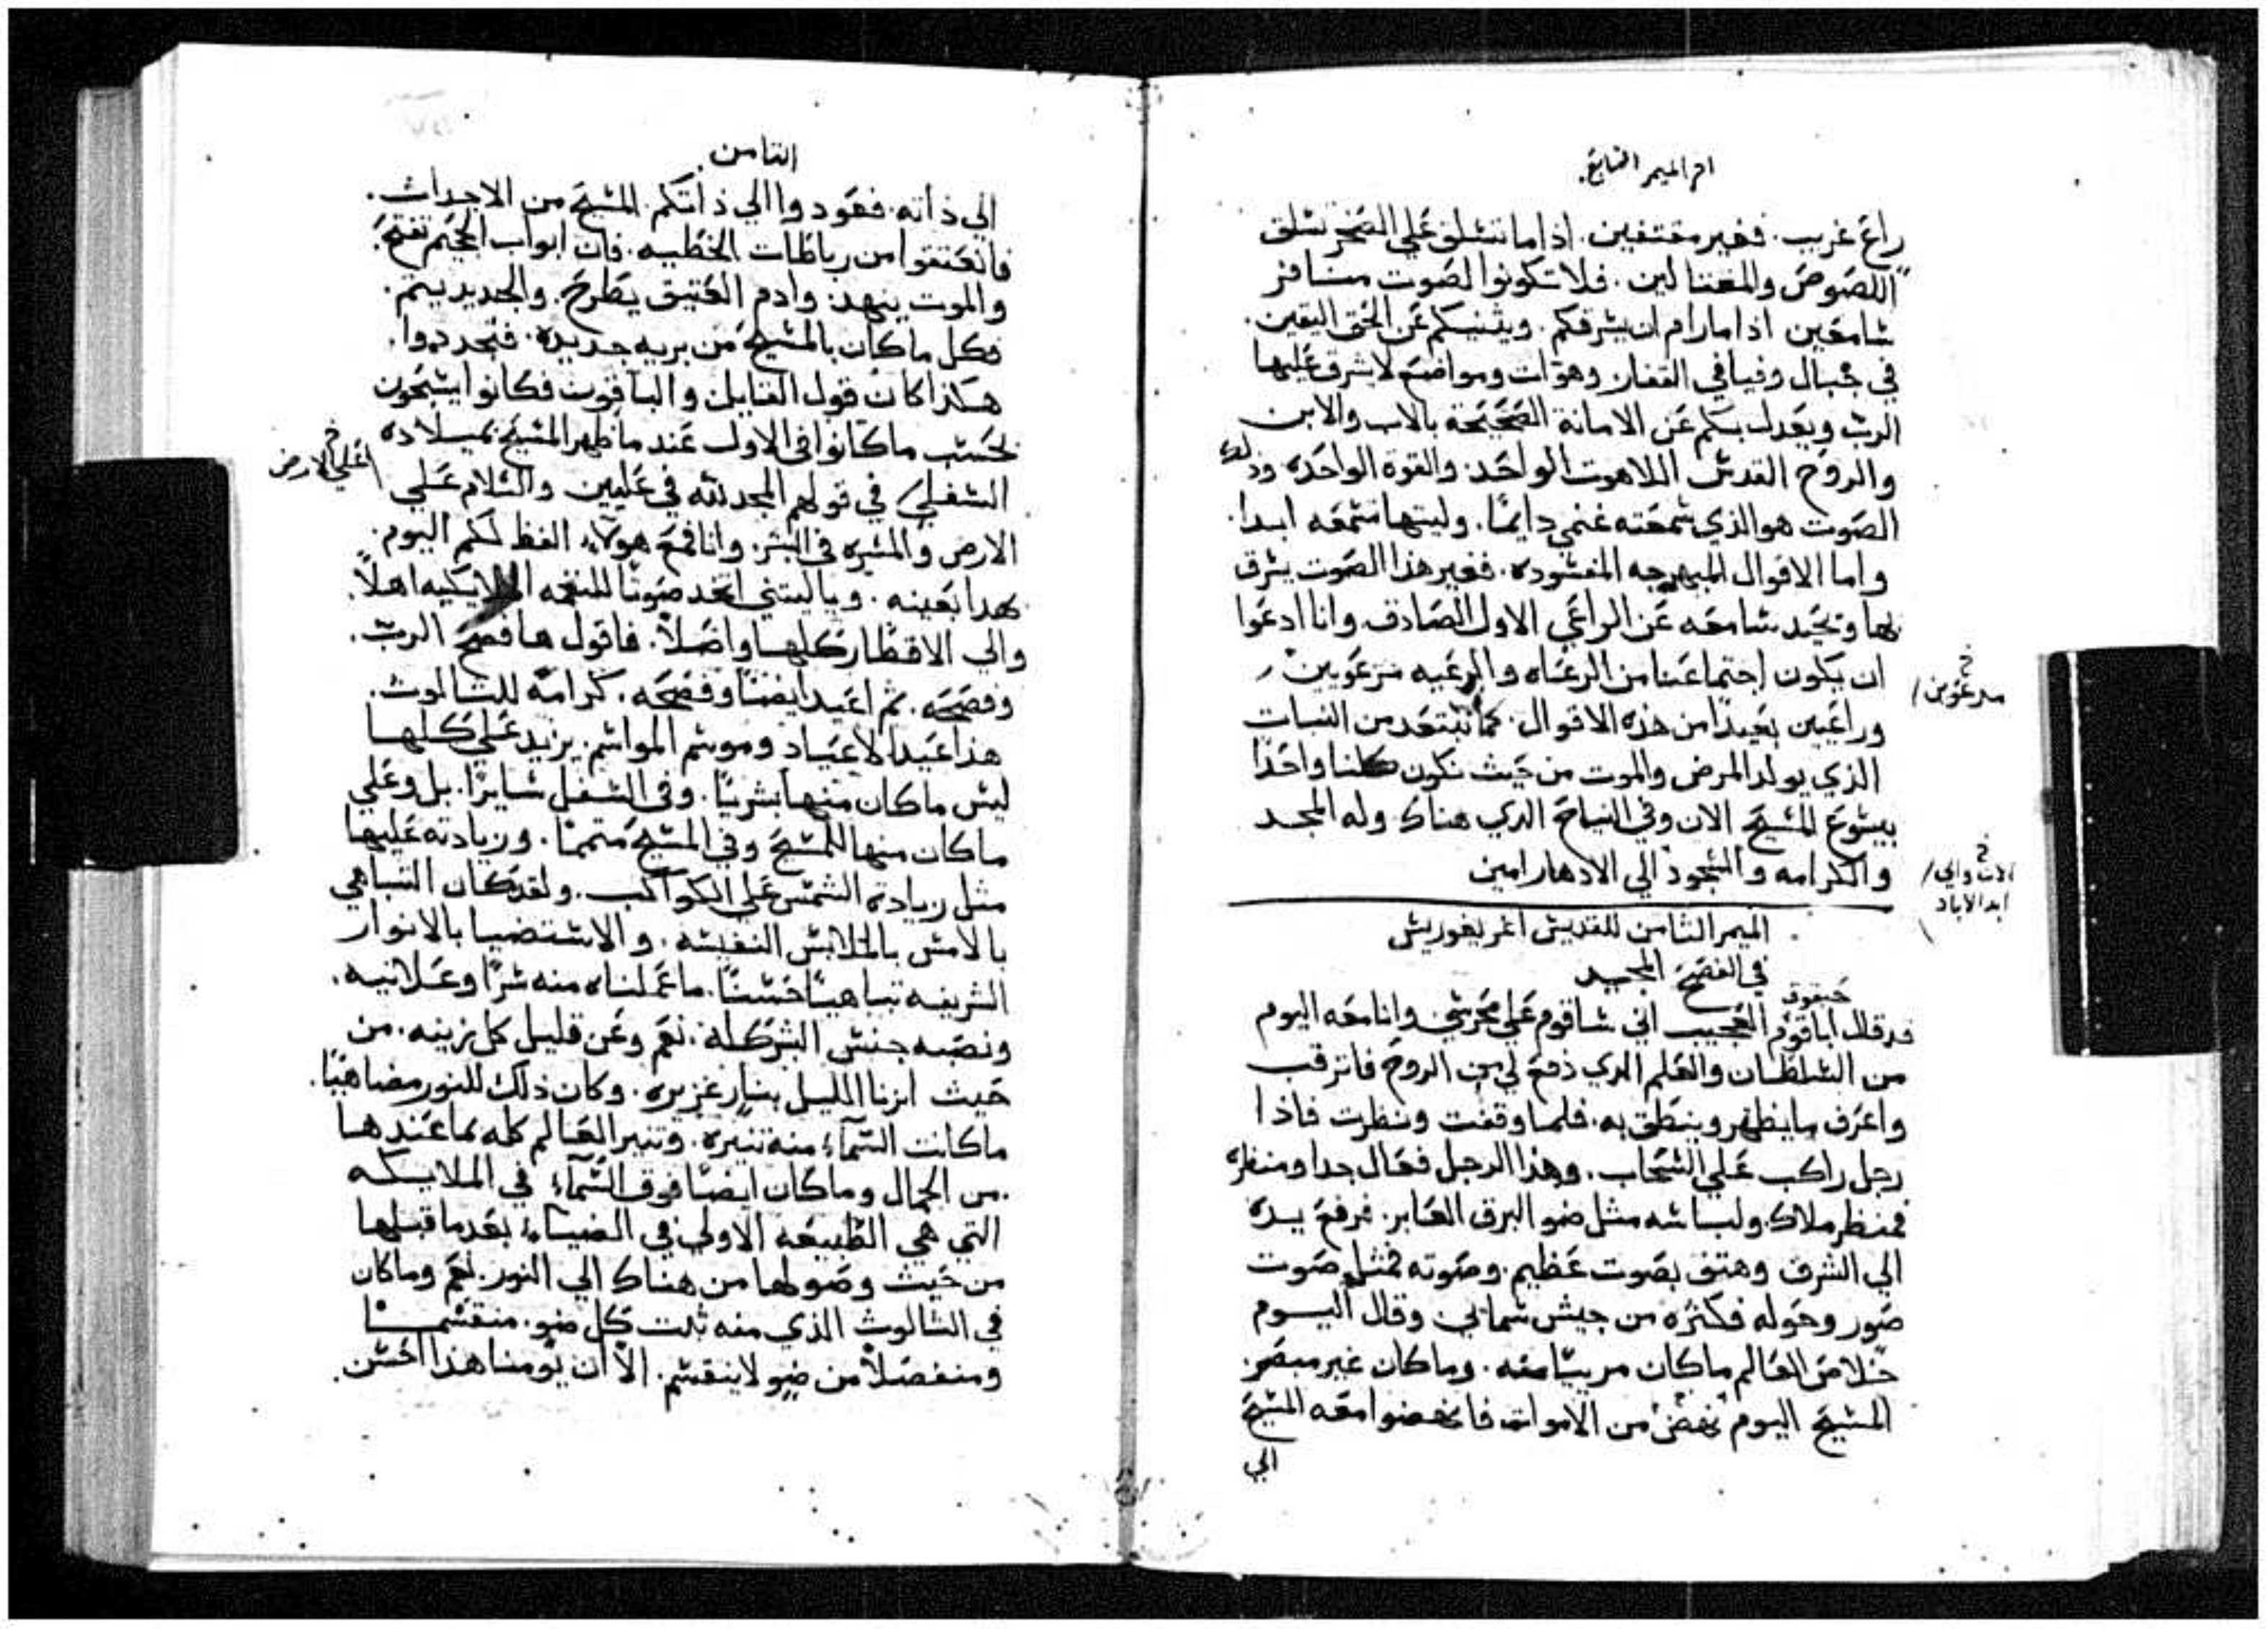 اخر الميمر السابع.
راع غريب. فغير مقتفين. اذا ما تسلق علي الصخر تسلق
اللصوص والمغتالين. فلا تكونوا لصوت مسافر
سامعين اذا ما رام ان يسرقكم. ويثنيكم عن الحق اليقين.
في جبال وفيافي القفار وهوات ومواضع لا يشرق عليها
الرب ويعدل بكم عن الامانة الصحيحة بالاب والابن
والروح القدس اللاهوت الواحد. والقوة الواحده وذلك
الصوت هو الذي سمعته غنمي دايمًا. وليتها تسمعه ابدا.
واما الاقوال المبهرجه المفسوده. فغير هذا الصوت يسرق
بها وتحيد سامعه عن الراعي الاول الصادق وانا ادعوا
ان يكون اجتماعنا من الرعاه والرعيه مرعويين
مدعوين
وراعيين بعيدًا من هذه الاقوال. كما نبتعد من النبات
الذي يولد المرض والموت من حيث نكون كلنا واحدًا
بيسوع المسيح الان وفي النياح الدي هناك وله المجد
والكرامه والسجود الي الادهار امين
الان والي
ابد الاباد
الميمر الثامن للقديس اغريغوريس
في الفصح المجيد
حبقوق
قد قال اباقوم العجيب اني ساقوم علي محرسي وانا معه اليوم
من السلطان والعلم الدي دفع لي من الروح فاترقب
واعرف ما ينظهر وينطق به. فلما وقفت ونظرت فاذا
رجل راكب علي السحاب. وهذا الرجل فعال جدا ومنظره
فمنظر ملاك. ولباسه مثل ضو البرق العابر. فرفع يده
الي الشرق وهتف بصوت عظيم. وصوته فمثل صوت
صور وحوله فكثره من جيش سماني وقال اليوم
خلاص العالم ما كان مريبًا منه. وما كان غير مبصر.
المسيح اليوم نهض من الاموات فانهضوا معه المسيح
الي
الثامن.
الي ذاته. فعودوا الي ذاتكم. المسيح من الاجداث.
فانعتقوا من رباطات الخطيه. فان ابواب الجحيم تفتح.
والموت ينهد. وادم العتيق يطرح. والجديد يتم.
فكل ما كان بالمسيح من بريه جديده. فتجددوا.
هكذا كان قول القايل والباقون فكانوا يسبحون
بحسب ما كانوا في الاول عند ما ظهر المسيح بميلاده
السفلي في قولهم المجد لله في عليين والسلام علي
علي الارض
الارض والمسره في البشر. وانا فمع هولاء الفظ لكم اليوم.
بهدا بعينه. وياليتني اتخد صوتًا للنغمه الملايكيه اهلاً.
والي الاقطار كلها واصلاً. فاقول ها فصح الرب.
وفصحه. ثم اعيد ايضًا وفصحه. كرامة للثالوث.
هذا عيد الاعياد وموسم المواسم. يزيد علي كلها
ليس ما كان منها بشريًا. وفي السفل سايرًا. بل وعلي
ما كان منها للمسيح وفي المسيح متممًا. وزيادته عليها
مثل زيادة الشمس علي الكواكب. ولقد كان التباهي
بالامس بالملابس النفيسه. والاستضيا بالانوار
الشريفه تباهيًا حسنًا. ما عملناه منه سرًا وعلانيه.
ونصبه جنس البشر كله. نعم وعن قليل كل زينه. من
حيث انرنا الليل بنار غزيره. وكان ذلك للنور مضاهيًا.
ما كانت السماء منه تنيره. وتنير العالم كله بما عندها
من الجمال وما كان ايضًا فوق السماء في الملايكه
التي هي الطبيعه الاولي في الضياء بعد ما قبلها
من حيث وصولها من هناك الي النور. نعم وما كان
في الثالوث الذي منه ثبت كل ضو. منقسمًا
ومنفصلاً من ضو لا ينقسم. الا ان يومنا هذا احسن.